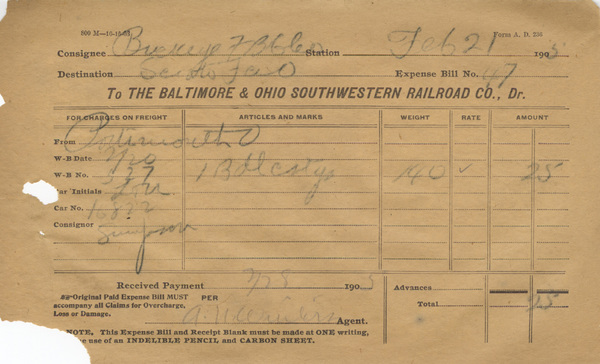 500 M—10-10-03. Form A. D. 236
Consignee Buckeye F B Co Station Feb 21 1905
Destination Scioto Fce O Expense Bill No. 47
To THE BALTIMORE & OHIO SOUTHWESTERN RAILROAD CO., Dr.
FOR CHARGES ON FREIGHT ARTICLES AND MARKS WEIGHT RATE AMOUNT
From Portsmouth O
W-B Date 2/20
W-B No. 527 1 Bdl castgs 140 ✓ 25
Car Initials
Car No. 16822
Consignor Simpson
Received Payment 2/28 1905 Advances
Original Paid Expense Bill MUST PER
accompany all Claims for Overcharge, Total 25
Loss or Damage. Agent.
NOTE. This Expense Bill and Receipt Blank must be made at ONE writing,
use of an INDELIBLE PENCIL and CARBON SHEET.